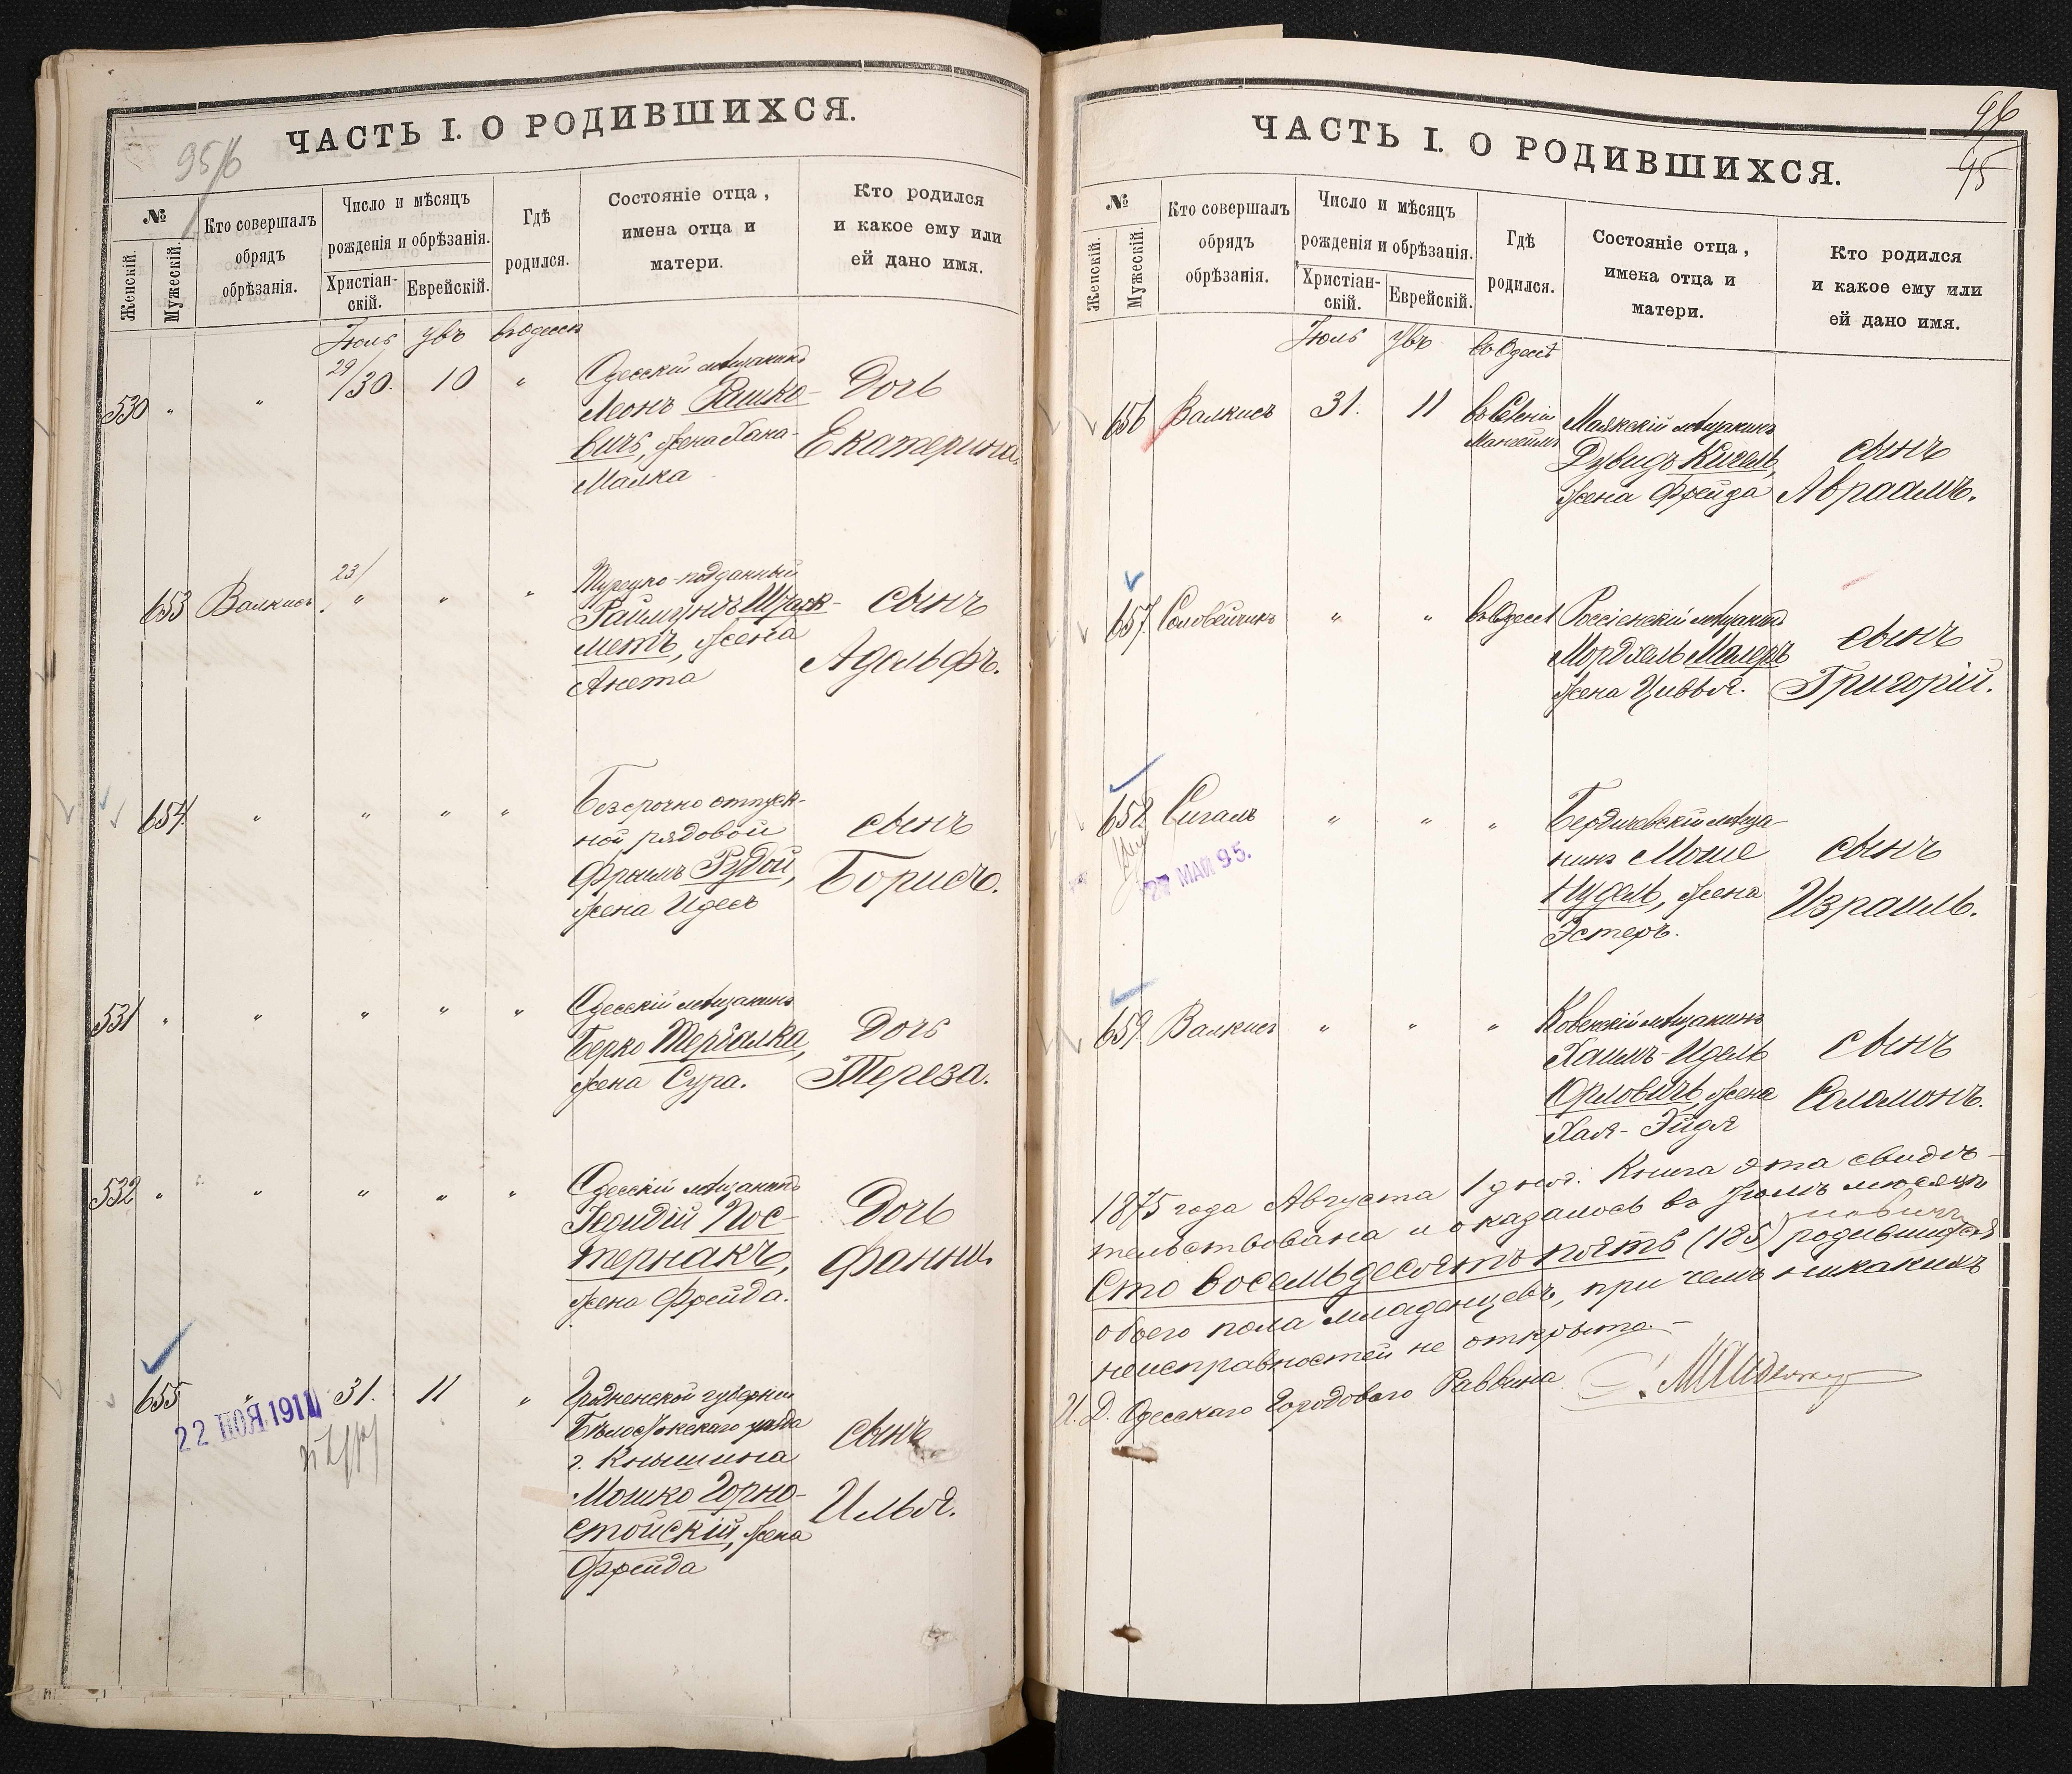 ЧАСТЬ I. О РОДИВШИХСЯ.
95/б
№
Женскій.
Мужескій.
Кто совершалъ
обрядъ
обрѣзанія.
Число и мѣсяцъ
рожденія и обрѣзанія.
Христіан-
скій.
Еврейскій.
Гдѣ
родился.
Состояніе отца,
имена отца и
матери.
Кто родился
и какое ему или
ей дано имя.
Іюль Увъ въ Одессѣ
530 " " 29/30. 10 "
Одесскій мѣщанинъ
Леонъ Рашко-
вичъ, жена Хана-
Малка
Дочь
Екатерина.
653 Валкисъ. 23/ " " "
Турецко-подданный
Раймундъ
метъ, жена
Анета
сынъ
Адольфъ.
654. " " " "
Безсрочно отпуск-
ной рядовой
Фроимъ Рудой,
жена Идесъ
сынъ
Борисъ.
531 " " " " "
Одесскій мѣщанинъ
Берко Тербалка,
жена Сура.
Дочь
Тереза.
532 " " " " "
Одесскій мѣщанинъ
Іедидій Пос-
тернакъ,
жена Фрейда.
Дочь
Фанни.
655 " 31. 11 "
22 НОЯ 1911
Гродненской губерніи
Бѣлостокскаго уѣзда
г. Кнышина
Мошко Горно-
стойскій, жена
Фрейда
сынъ
Илья.
ЧАСТЬ I. О РОДИВШИХСЯ.
96
95
№
Женскій.
Мужескій.
Кто совершалъ
обрядъ
обрѣзанія.
Число и мѣсяцъ
рожденія и обрѣзанія.
Христіан-
скій.
Еврейскій.
Гдѣ
родился.
Состояніе отца,
имена отца и
матери.
Кто родился
и какое ему или
ей дано имя.
Іюль Увъ въ Одессѣ
656 Валкисъ 31. 11
Маякскій мѣщанинъ
Дувидъ Кигель,
жена Фрейда
сынъ
Авраамъ.
657. Соловейчикъ " " въ Одессѣ
Россіенскій мѣщанинъ
Мордхель Маледъ
жена Цивья.
сынъ
Григорій.
658. Сигалъ " " "
27 МАЙ 95.
Бердичевскій мѣща-
нинъ Моше
Нудель, жена
Эстеръ.
сынъ
Израиль.
659. Валкисъ " " "
Ковенскій мѣщанинъ
Хаимъ-Идель
Орловичъ, жена
Хая-Эйдля
сынъ
Соломонъ.
1875 года Августа 1 дня. Книга эта свидѣ-
тельствована и оказалось въ Іюлѣ мѣсяцѣ
Сто восемьдесятъ пять (185) родившихся
обоего пола младенцевъ, при чемъ никакихъ
неисправностей не открыто.-
И. Д. Одесскаго Городоваго Раввина